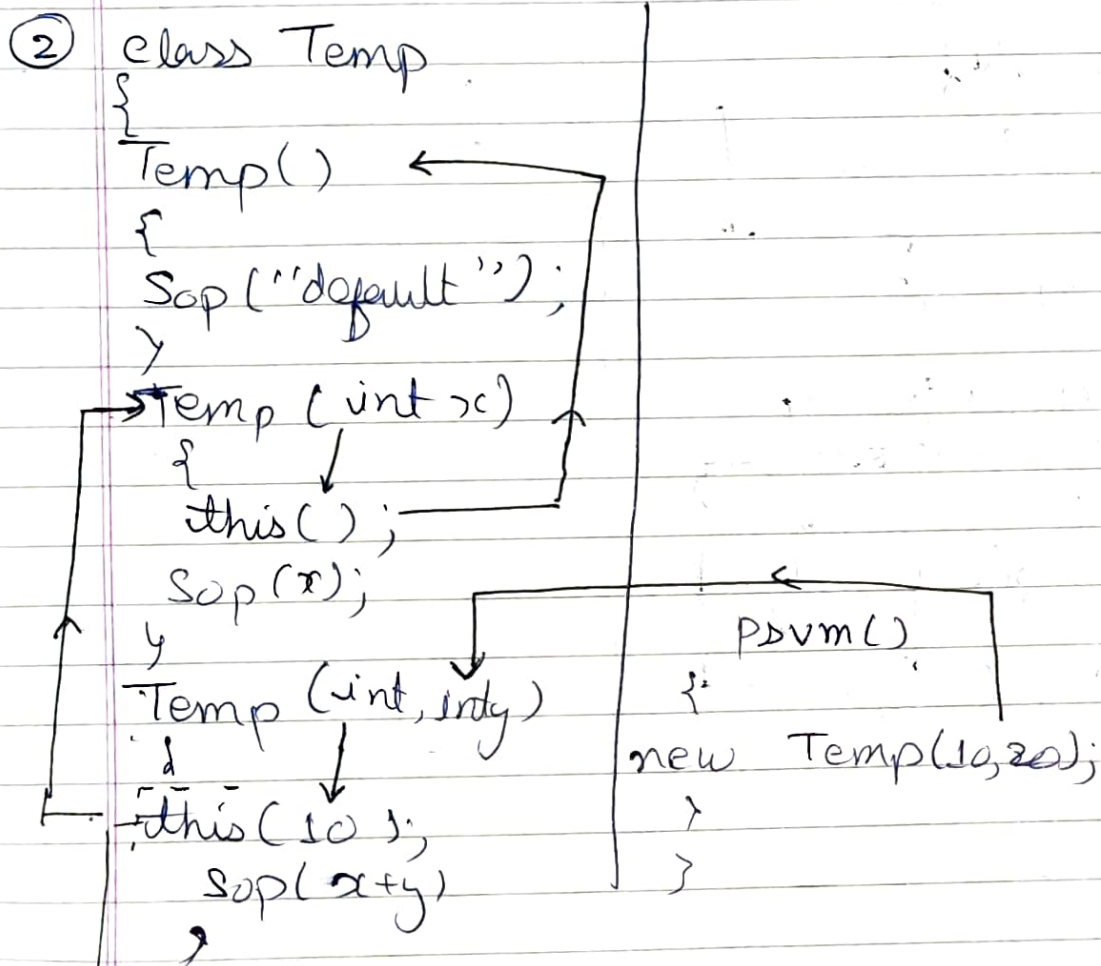 ② class Temp
{
Temp()
{
Sop ("default");
}
Temp (int x)
{
this();
Sop(x);
}
Temp (int, inty)
{
this(10);
Sop(x+y)
}
PSVM()
{
new Temp(10,20);
}
}